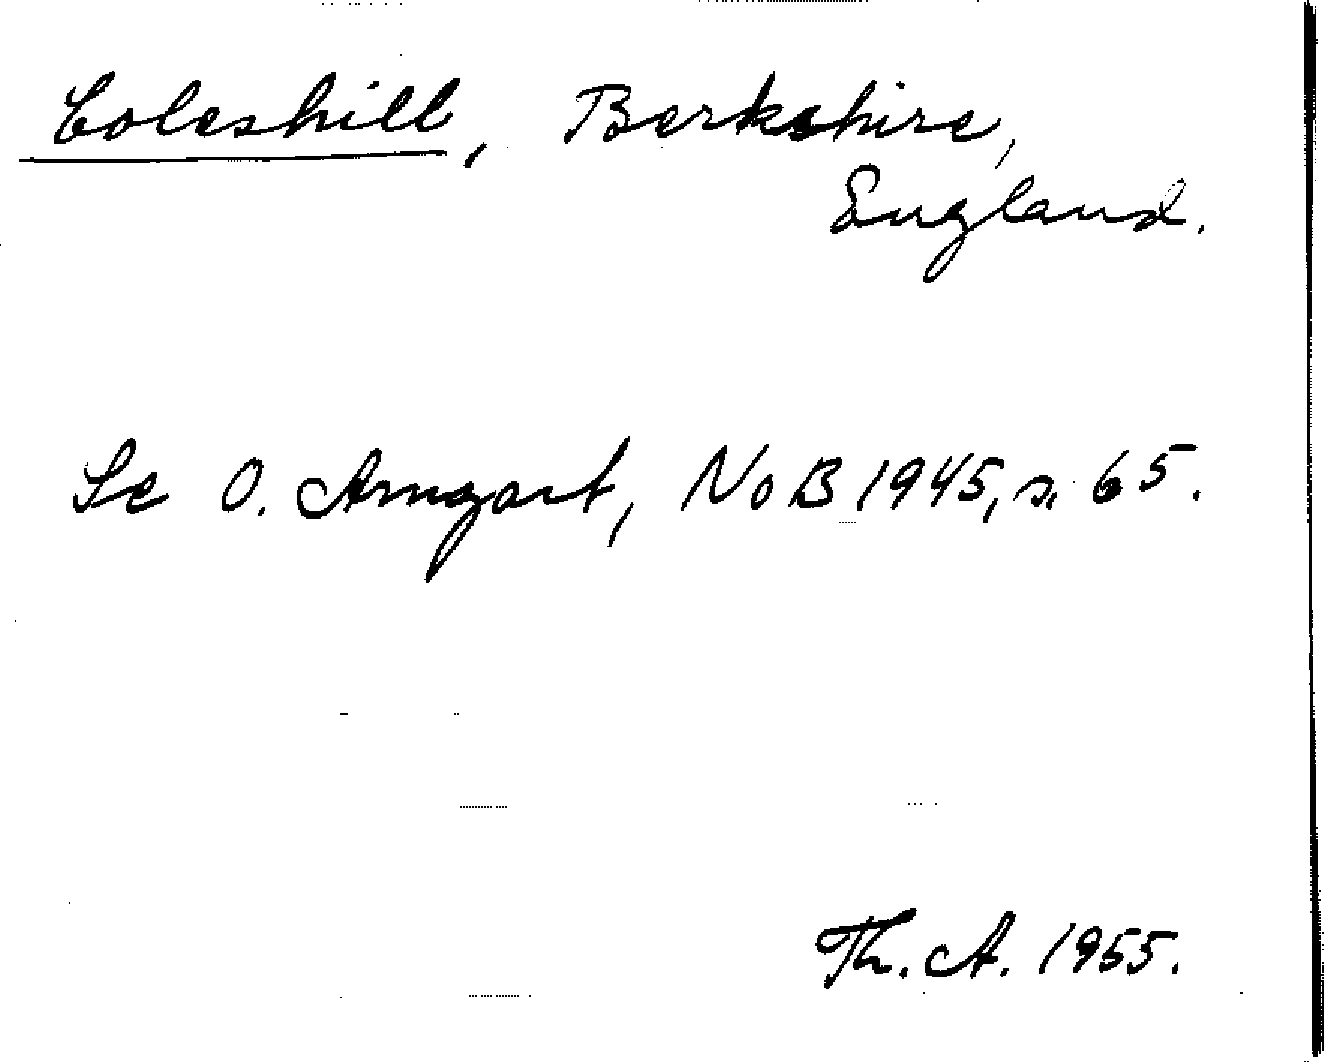 Coleshill, Berkshire,
England.
Se O. Arngart, NoB 1945, s. 65.
Th. A. 1955.